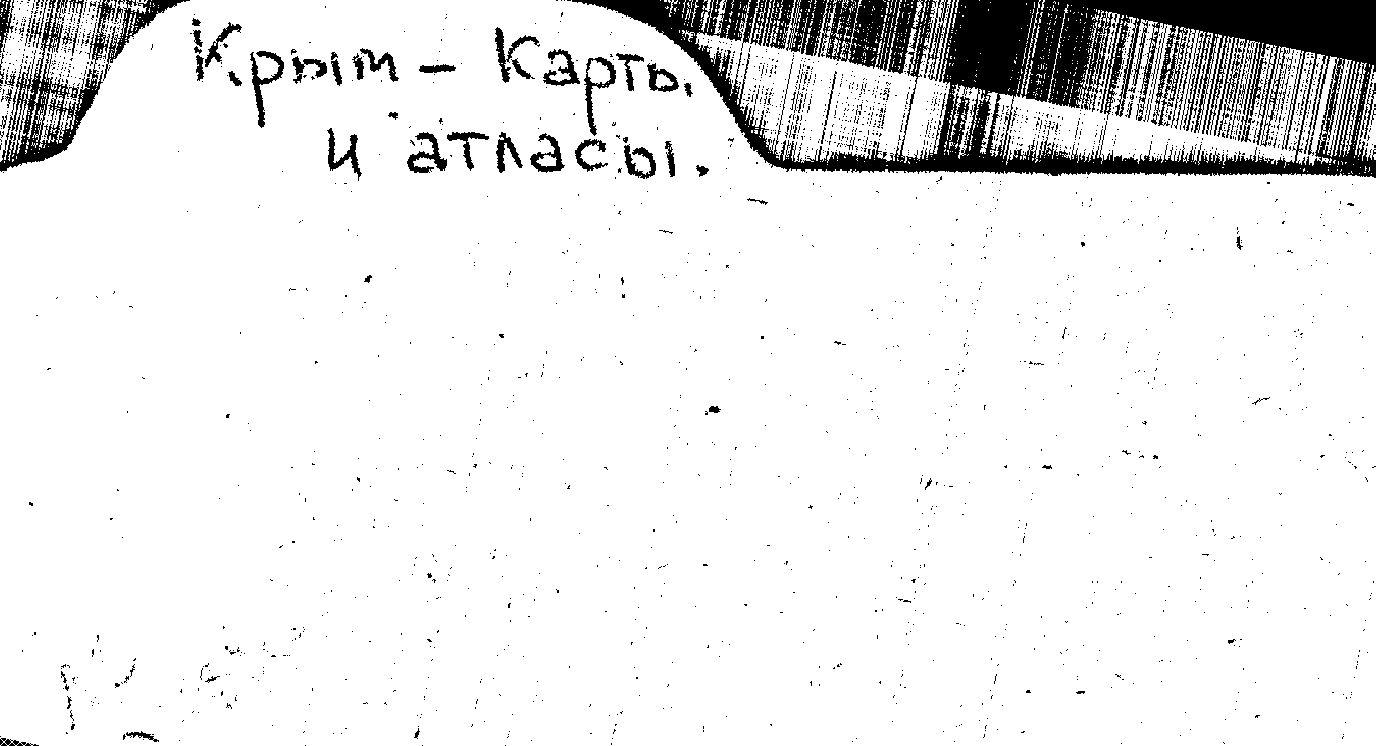 Крым – Карты
и атласы.